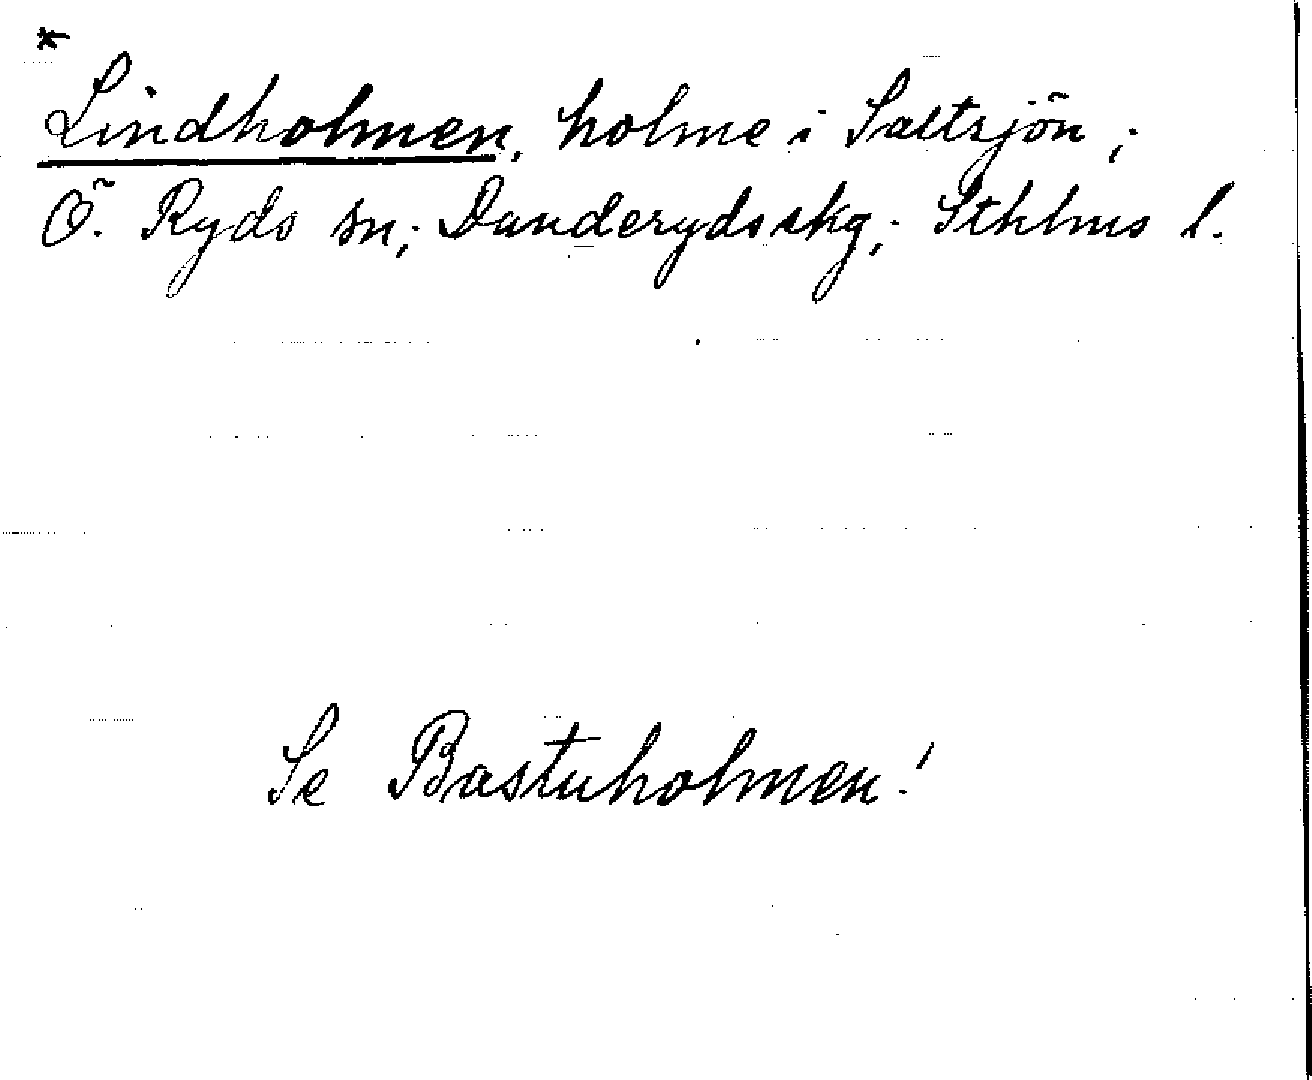 *
Lindholmen, holme i Saltsjön;
Ö. Ryds sn; Danderydsskg; Sthlms l.
Se Bastuholmen!